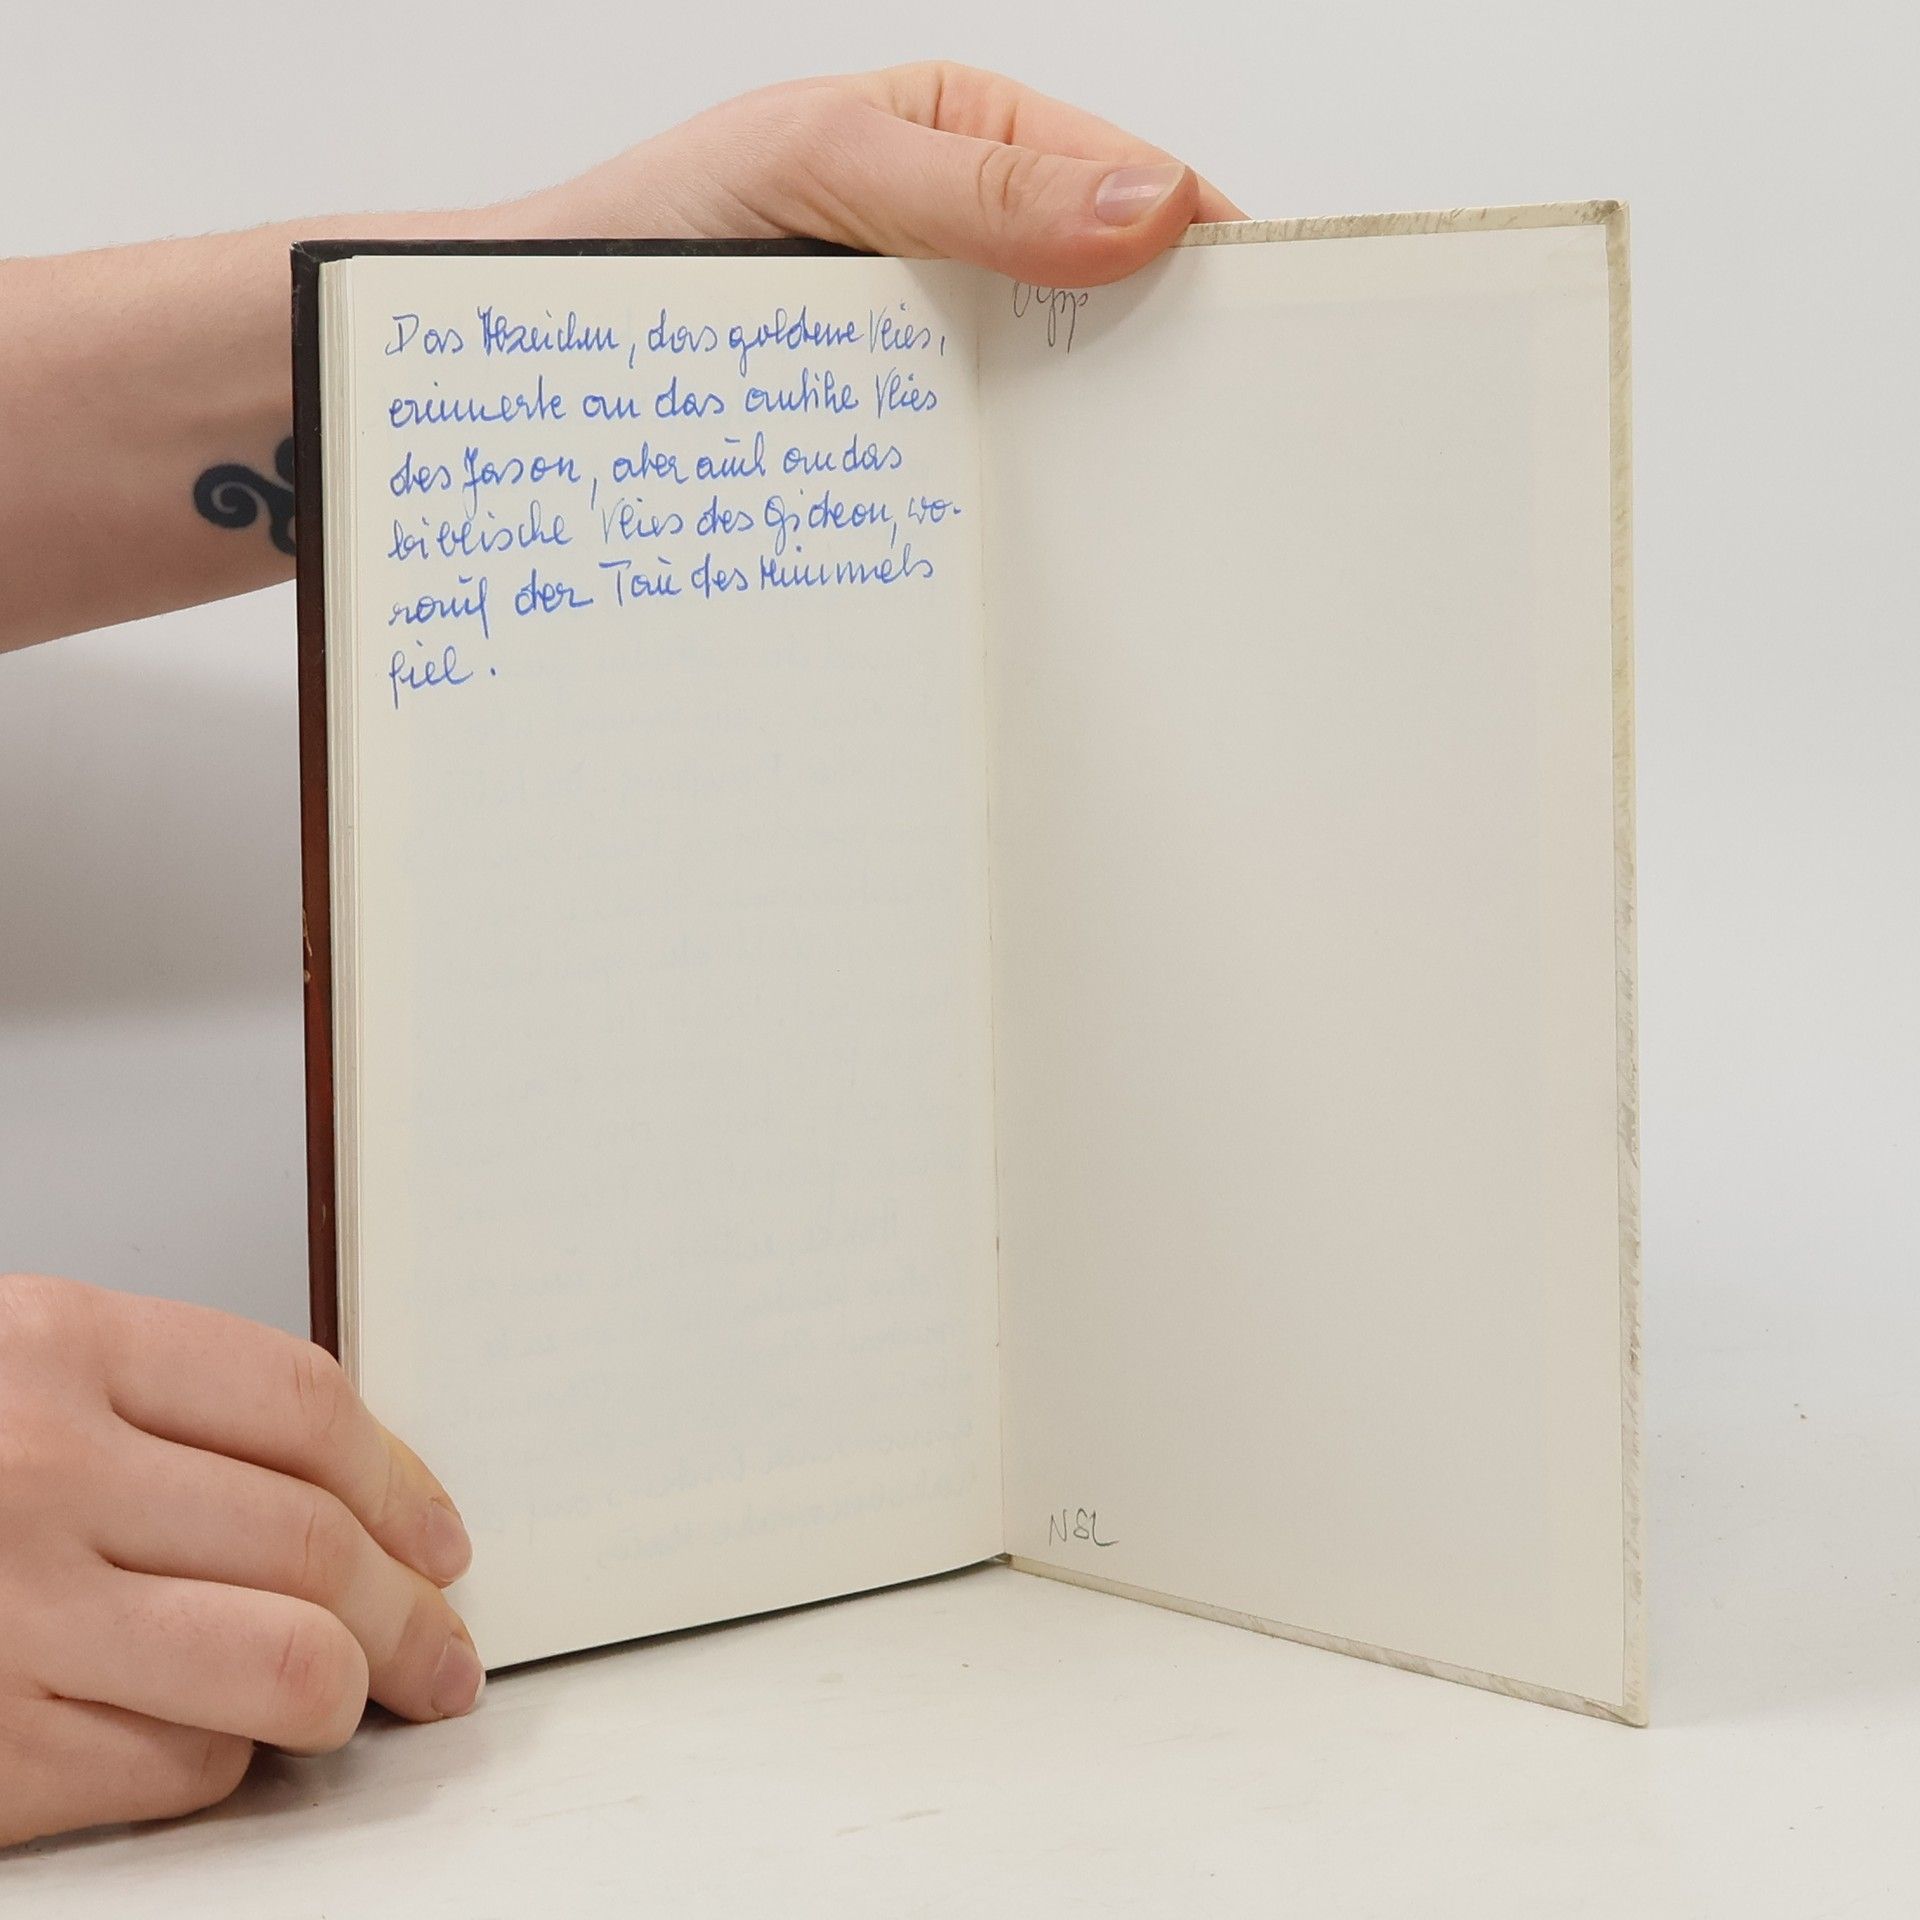 Das Abzeichen, das goldene Vlies,
erinnerte an das antike Vlies
des Jason, aber auch an das
biblische Vlies des Gideon, wo-
rauf der Tau des Himmels
fiel.
NSL